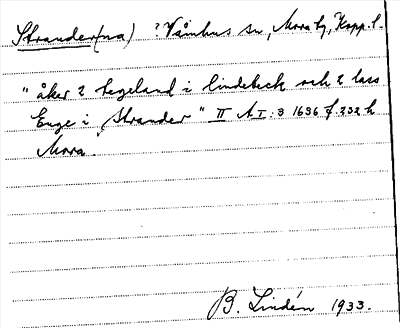 Strander(na) ? Våmhus sn, Mora tg, Kopp. l.
"åker 2 tegeland i lindebeck och 2 lass
Enge i Strander" II A I: 3 1636 f. 232 h
Mora.
B. Lindén 1933.